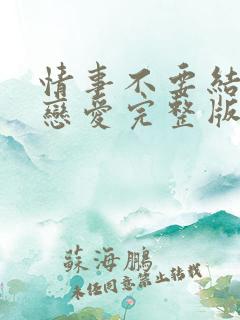 情事不要結
戀愛完整版
蘇海鵬
未经同意禁止转载